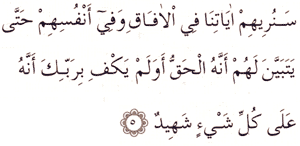 سَنُرِيهِمْ اٰيَاتِنَا فِي الْاٰفَاقِ وَفِيٓ أَنْفُسِهِمْ حَتَّى
يَتَبَيَّنَ لَهُمْ أَنَّهُ الْحَقُّ أَوَلَمْ يَكْفِ بِرَبِّكَ أَنَّهُ
عَلَى كُلِّ شَيْءٍ شَهِيدٌ ٥